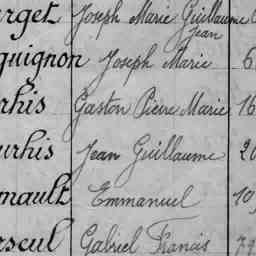 rget Joseph Marie Guillaume
Jean
guignon Joseph Marie 6
rhis Gaston Pierre Marie 16
urhis Jean Guillaume 20
nault Emmanuel 10
rseul Gabriel Francis